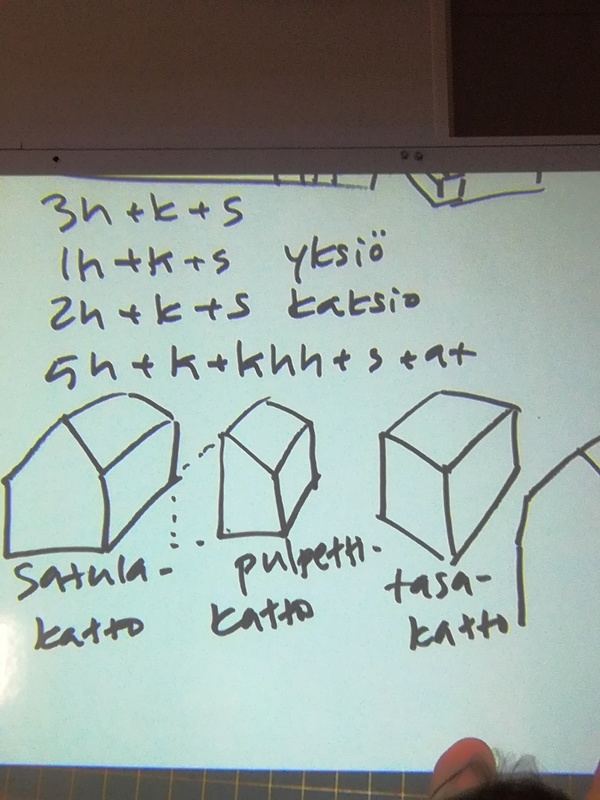 3h + k + s
1h + k + s yksiö
2h + k + s kaksio
5h + k + khh + s + at
satula-
katto
pulpetti-
katto
tasa-
katto